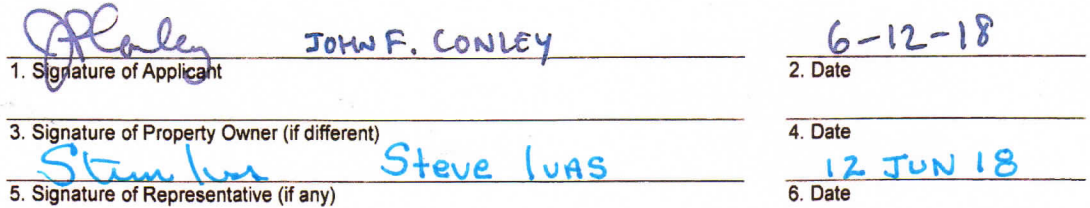 JPConley JOHN F. CONLEY 6-12-18
1. Signature of Applicant 2. Date
3. Signature of Property Owner (if different) 4. Date
Steve Ivas Steve IVAS 12 JUN 18
5. Signature of Representative (if any) 6. Date